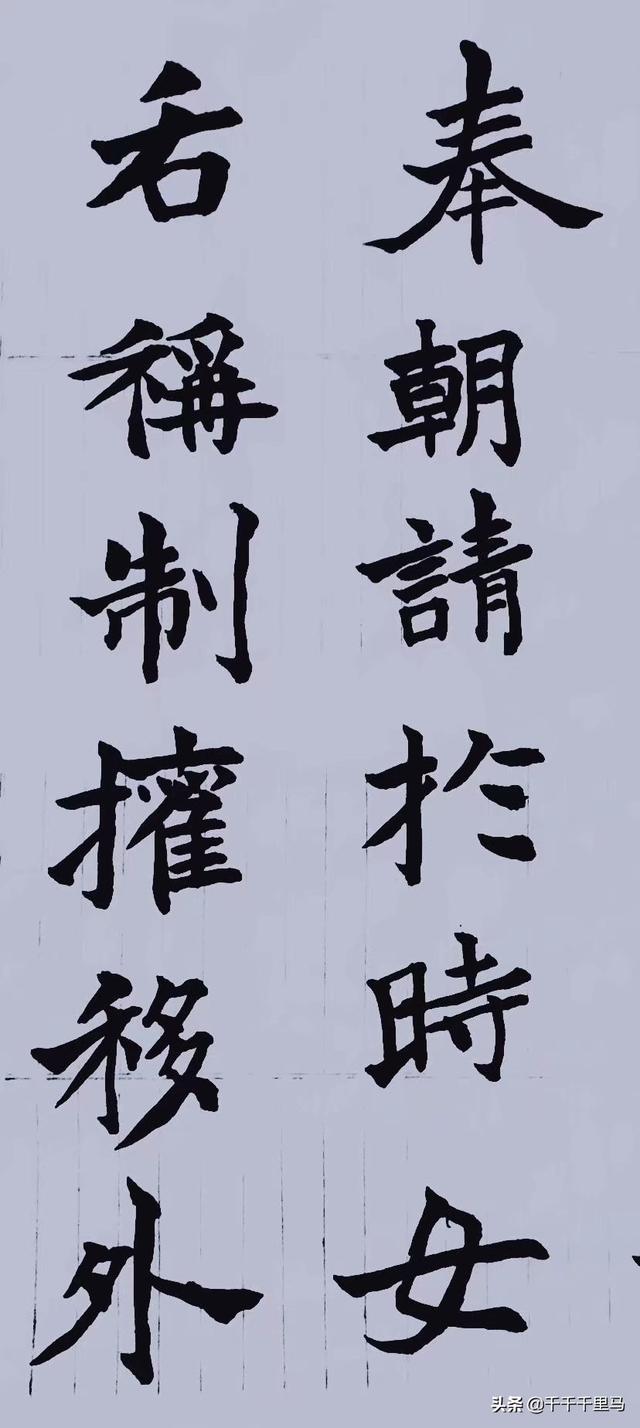 奉朝請於時女
后稱制權移外
头条 @千千千里马